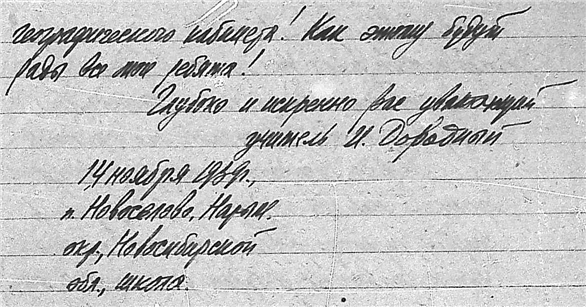 географического кабинета! Как этому будут
рады все мои ребята!
Глубоко и искренно Вас уважающий
учитель И.
14 ноября 1939г.,
п. Новоселово, Нарым.
окр., Новосибирской
обл., школа